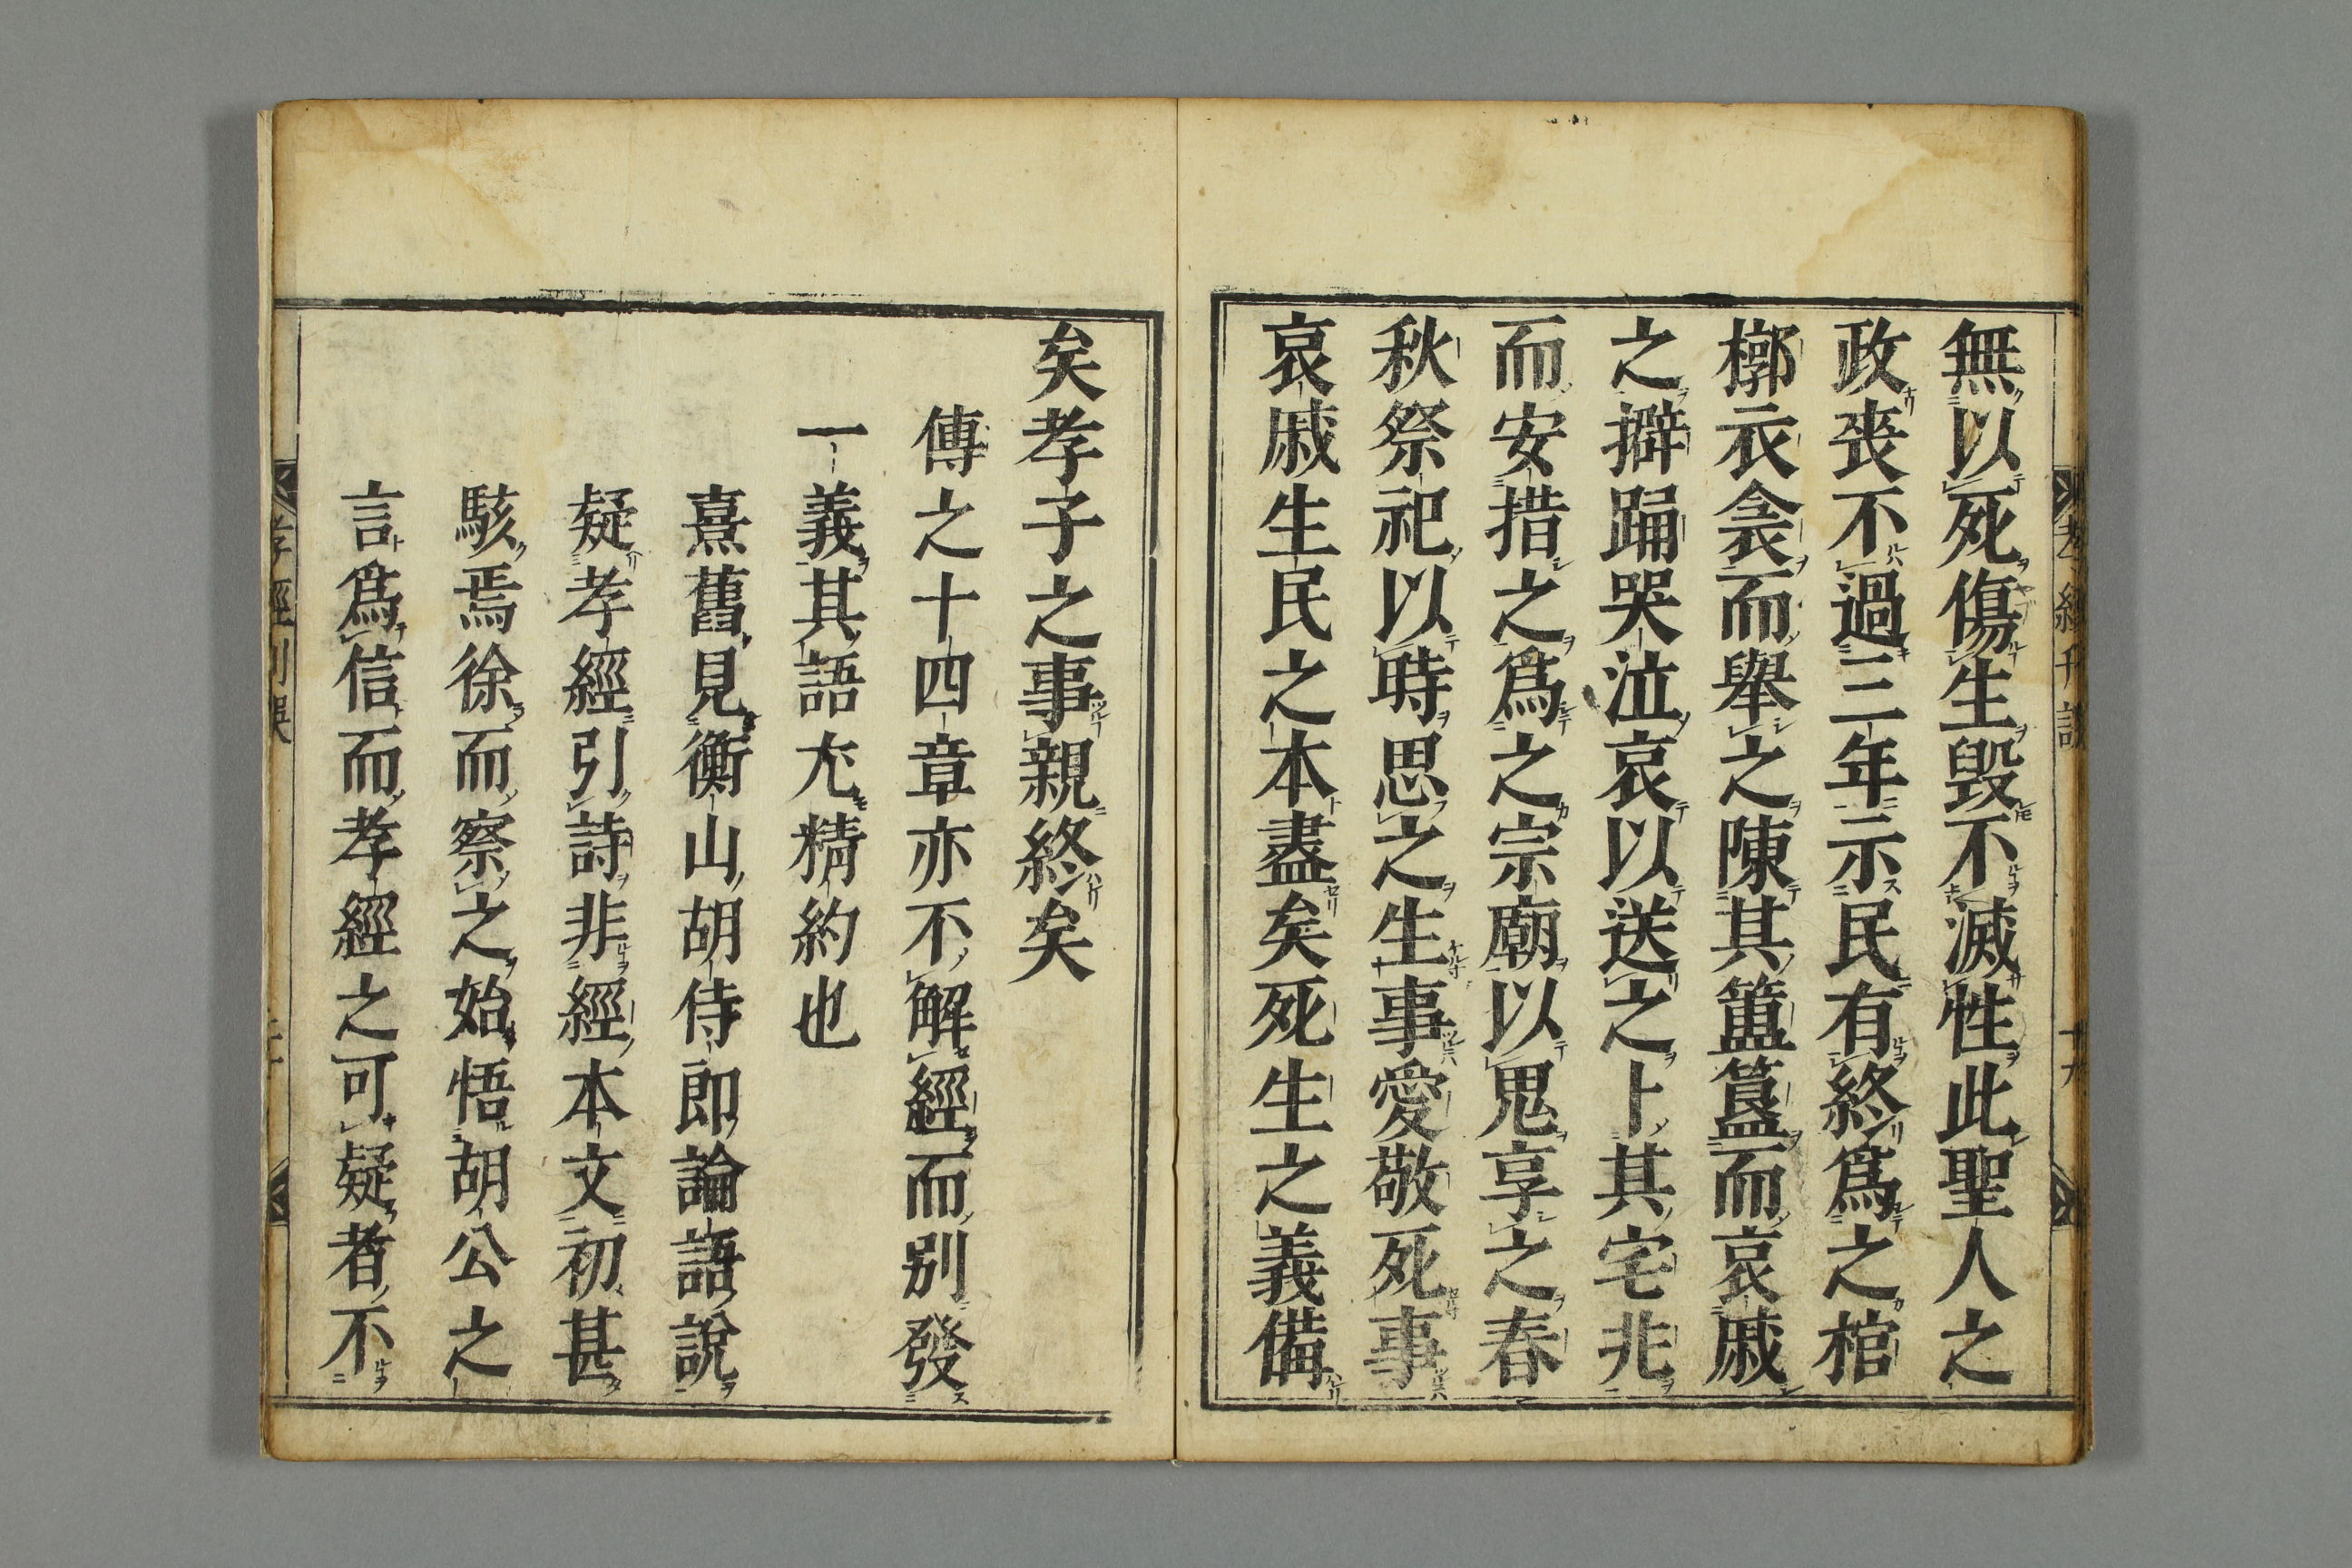 無以死傷生毀不滅性此聖人之
政喪不過三年示民有終爲之棺
槨衣衾而舉之陳其簠簋而哀戚
之擗踊哭泣哀以送之卜其宅兆
而安措之爲之宗廟以鬼享之春
秋祭祀以時思之生事愛敬死事
哀戚生民之本盡矣死生之義備
矣孝子之事親終矣
傳之十四章亦不解經而別發
一義其語尤精約也
熹舊見衡山胡侍郎論語說
疑孝經引詩非經本文初甚
駭焉徐而察之始悟胡公之
言爲信而孝經之可疑者不
孝經刊誤